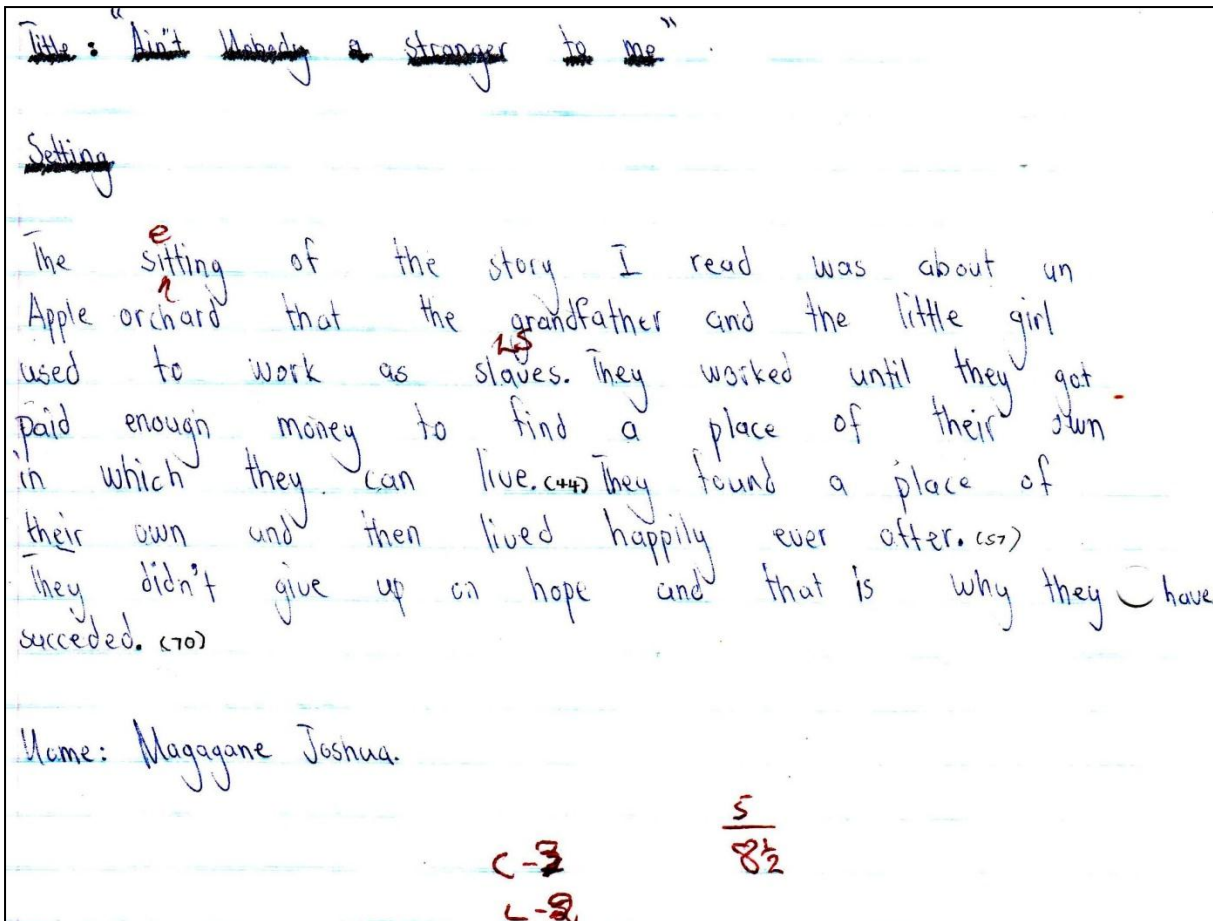 Title: "Ain't Nobody a stranger to me".
Setting
e
The sitting of the story I read was about an
Apple orchard that the grandfather and the little girl
used to work as slaves. They worked until they got
paid enough money to find a place of their own
in which they can live. (44) They found a place of
their own and then lived happily ever after. (57)
They didn't give up on hope and that is why they have
succeded. (70)
Name: Magagane Joshua.
5
C-3 8½
L-2